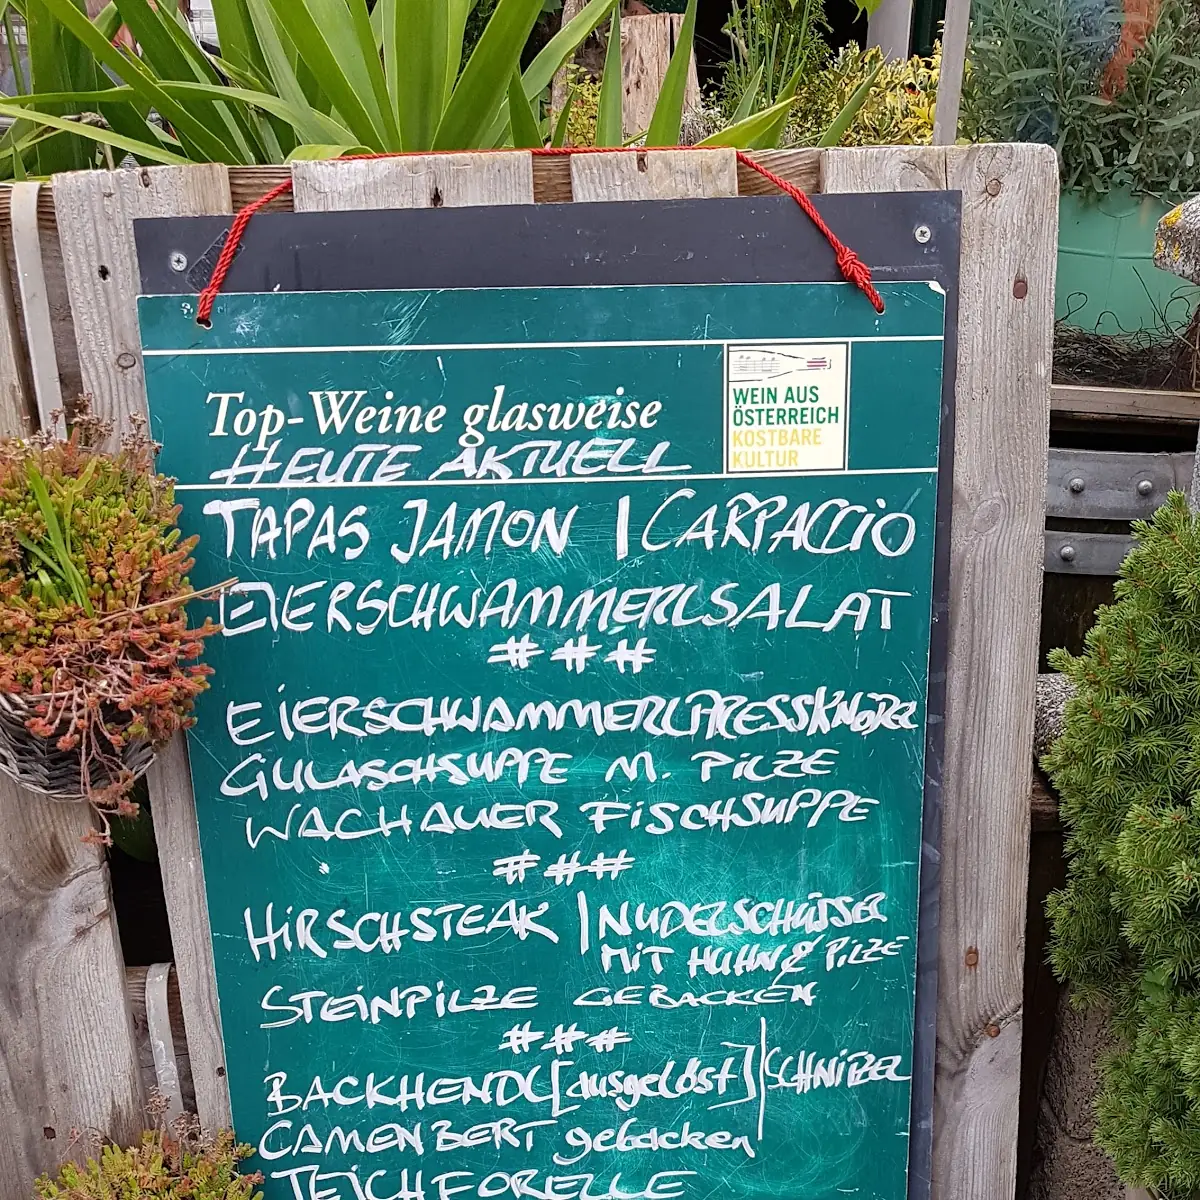 Top-Weine glasweise
WEIN AUS
ÖSTERREICH
KOSTBARE
KULTUR
HEUTE AKTUELL
TAPAS JAMON | CARPACCIO
EIERSCHWAMMERLSALAT
# # #
EIERSCHWAMMERLPRESSKNÖDEL
GULASCHSUPPE M. PILZE
WACHAUER FISCHSUPPE
# # #
HIRSCHSTEAK | NUDELSCHÜSSEL
MIT HUHN & PILZE
STEINPILZE GEBACKEN
# # #
BACKHENDL [ausgelöst] | SCHNITZEL
CAMENBERT gebacken
TEICHFORELLE